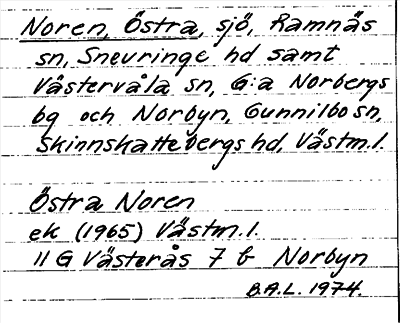 Noren, Östra, sjö, Ramnäs
sn, Snevringe hd samt
Västervåla sn, G:a Norbergs
bg och Norbyn, Gunnilbo sn,
Skinnskattebergs hd, Västm.l.
Östra Noren
ek (1965) Västm.l.
11 G Västerås 7 b Norbyn
B.A.L. 1974.